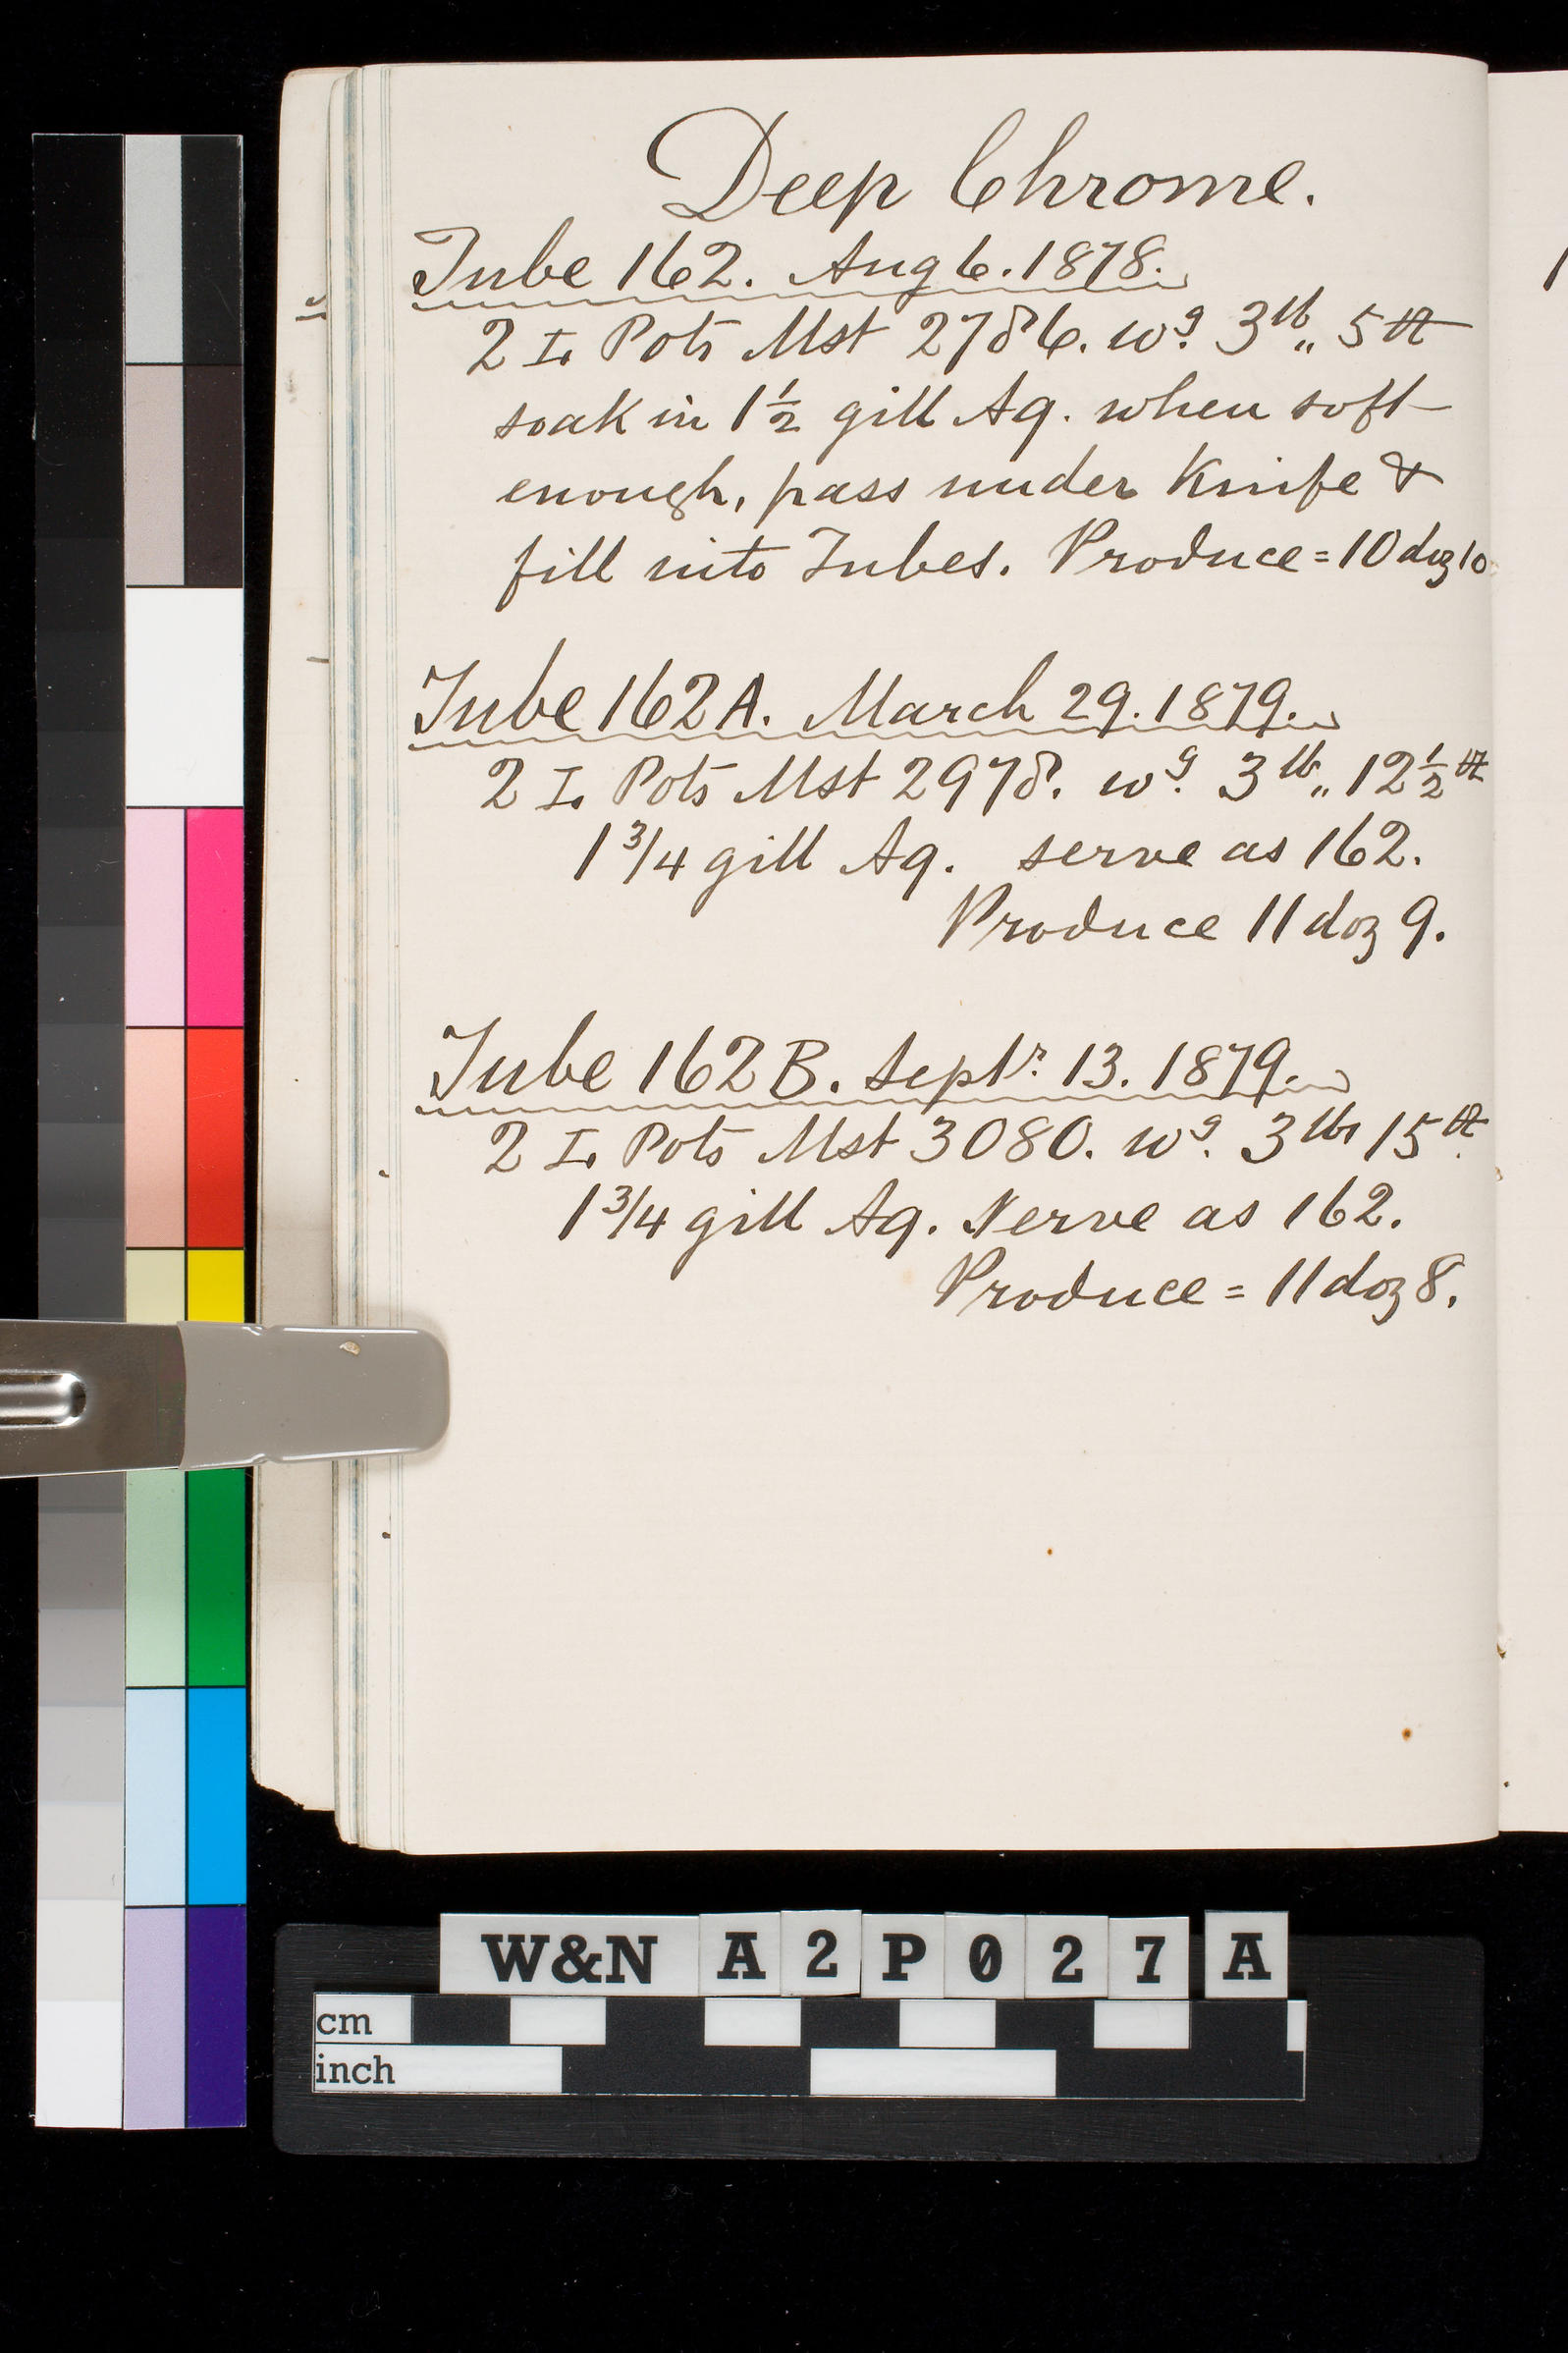 Deep Chrome.
Tube 162. Aug 6. 1878.
2 I. Pots Mst 2786. wg. 3 lb,, 5
soak in 1½ gill Aq. when soft
enough, pass under Knife &
fill into Tubes. Produce = 10 doz 10
Tube 162A. March 29. 1879.
2 I. Pots Mst 2978. wg. 3 lb,, 12½
1 3/4 gill Aq. serve as 162.
Produce 11 doz 9.
Tube 162B. Septr. 13. 1879.
2 I. Pots Mst 3080. wg. 3 lbs 15
1 3/4 gill Aq. Serve as 162.
Produce = 11 doz 8.
W&N A2P027A
cm
inch